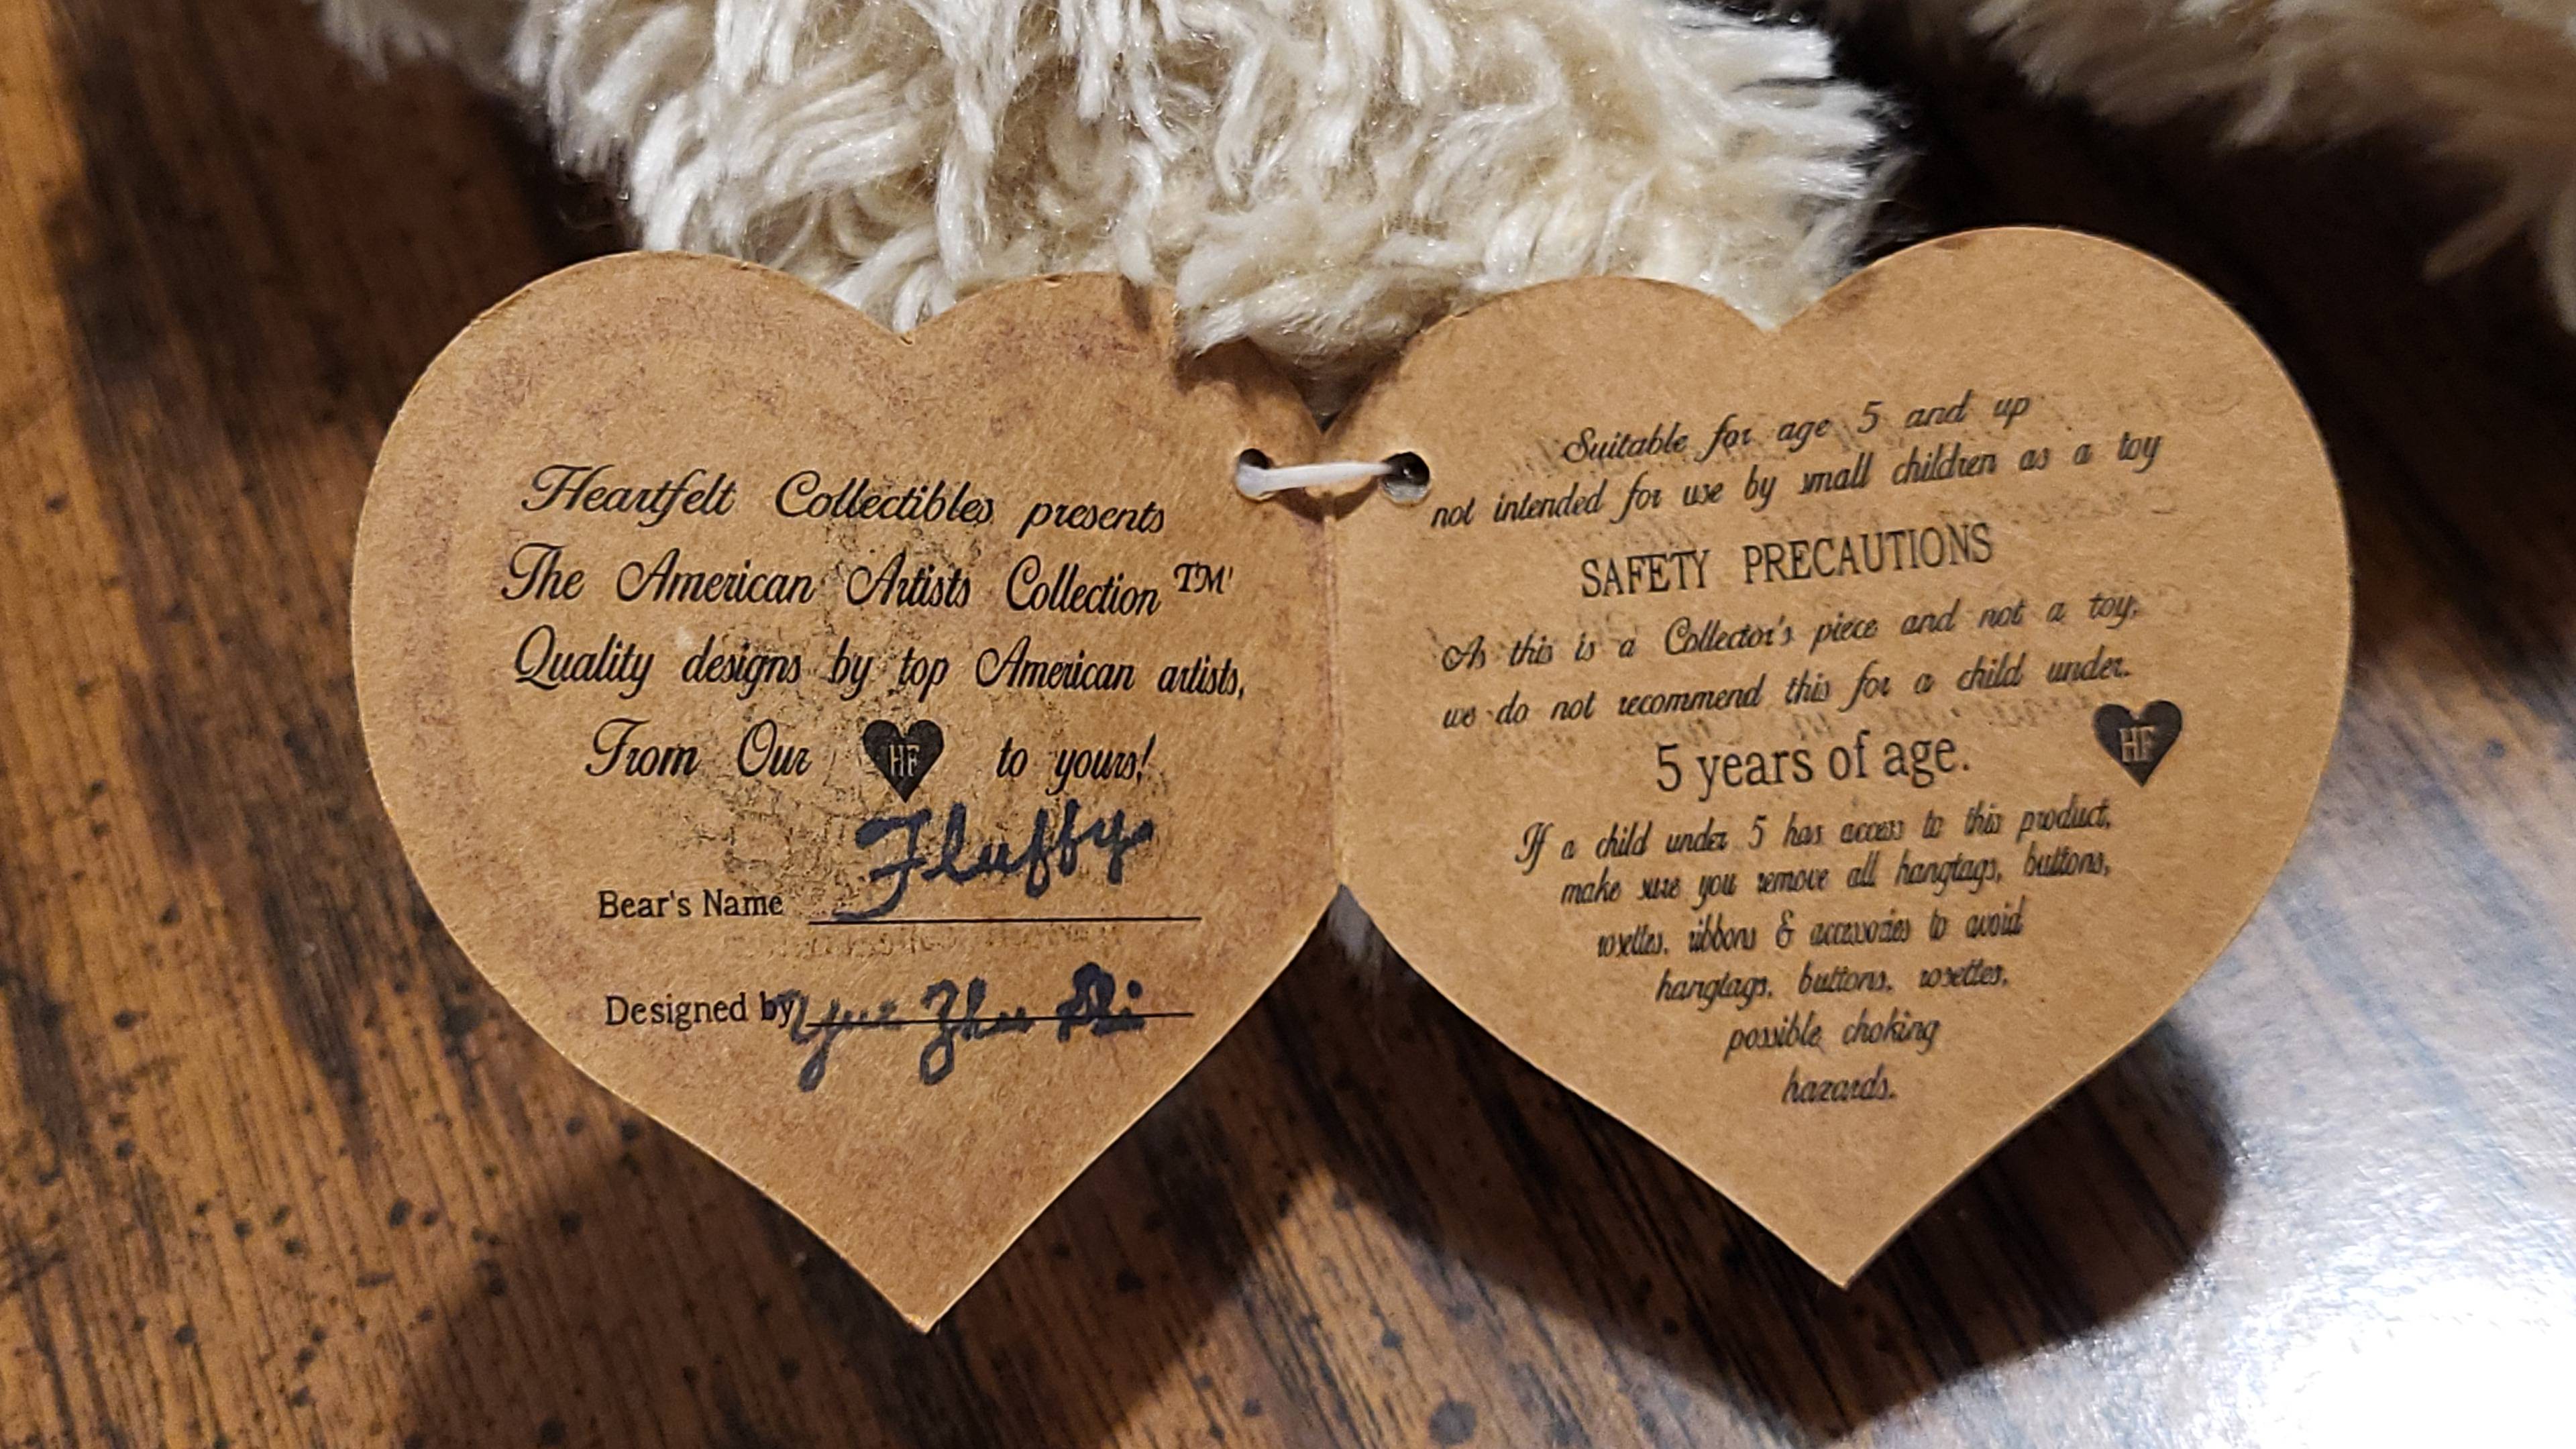 Heartfelt Collectibles presents
The American Artists Collection™
Quality designs by top American artists,
From Our HF to yours!
Bear's Name Fluffy
Designed by Yue Zhu
Suitable for age 5 and up
not intended for use by small children as a toy
SAFETY PRECAUTIONS
As this is a Collector's piece and not a toy,
we do not recommend this for a child under.
5 years of age.
HF
If a child under 5 has access to this product,
make sure you remove all hangtags, buttons,
rosettes, ribbons & accessories to avoid
hangtags, buttons, rosettes,
possible choking
hazards.